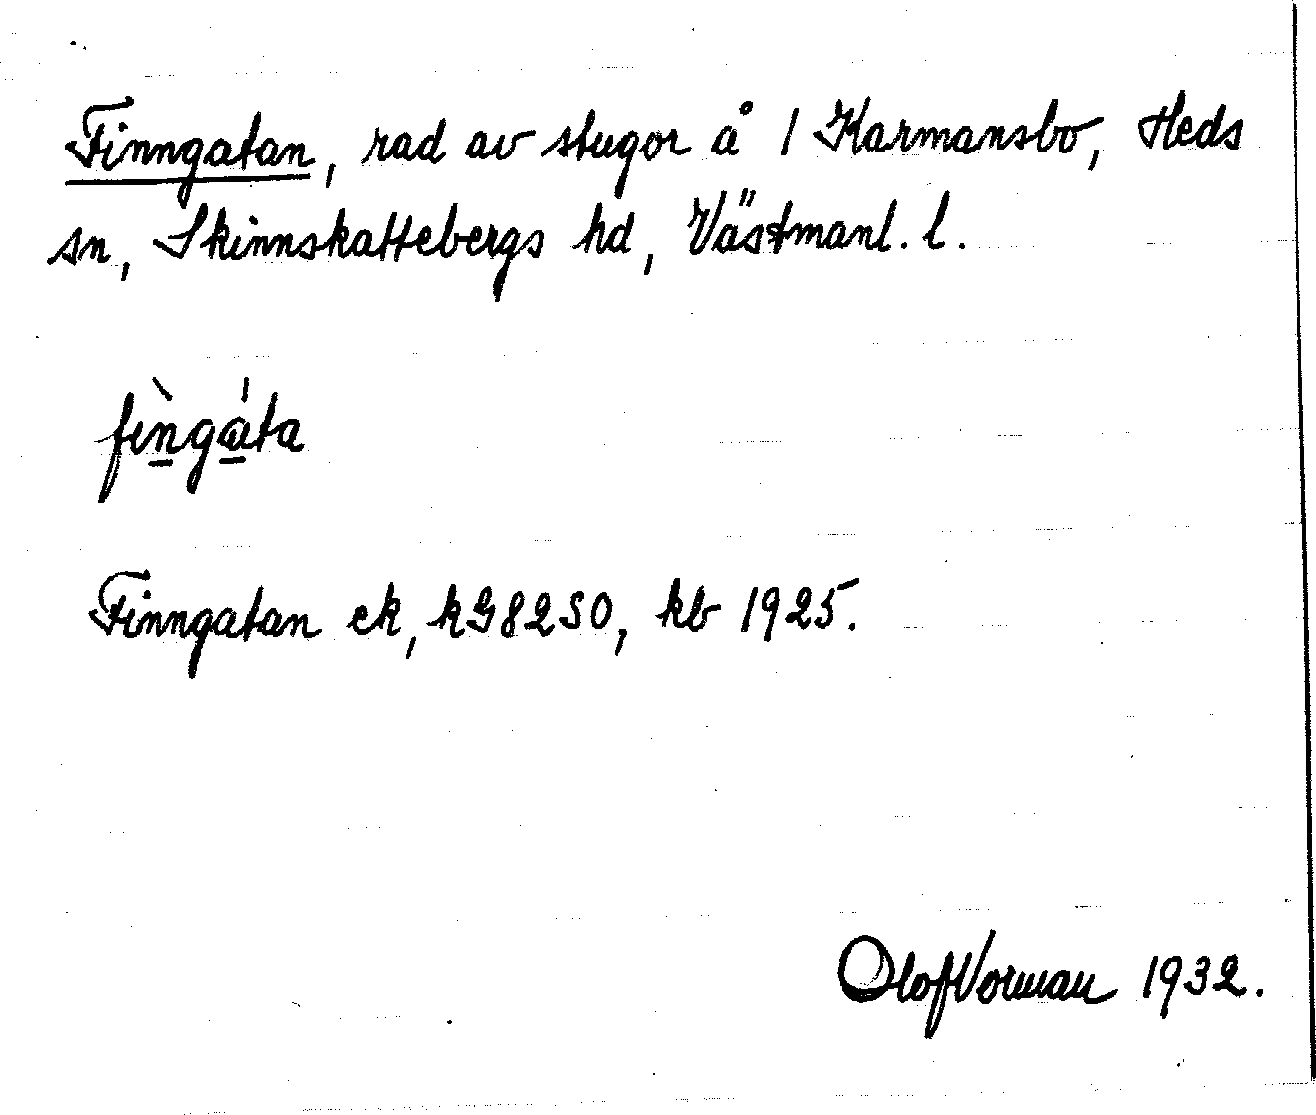 Finngatan, rad av stugor å 1 Karmansbo, Heds
sn, Skinnskattebergs hd, Västmanl. l.
fìngáta
Finngatan ek, kG82SO, kb 1925.
Olof Vorman 1932.